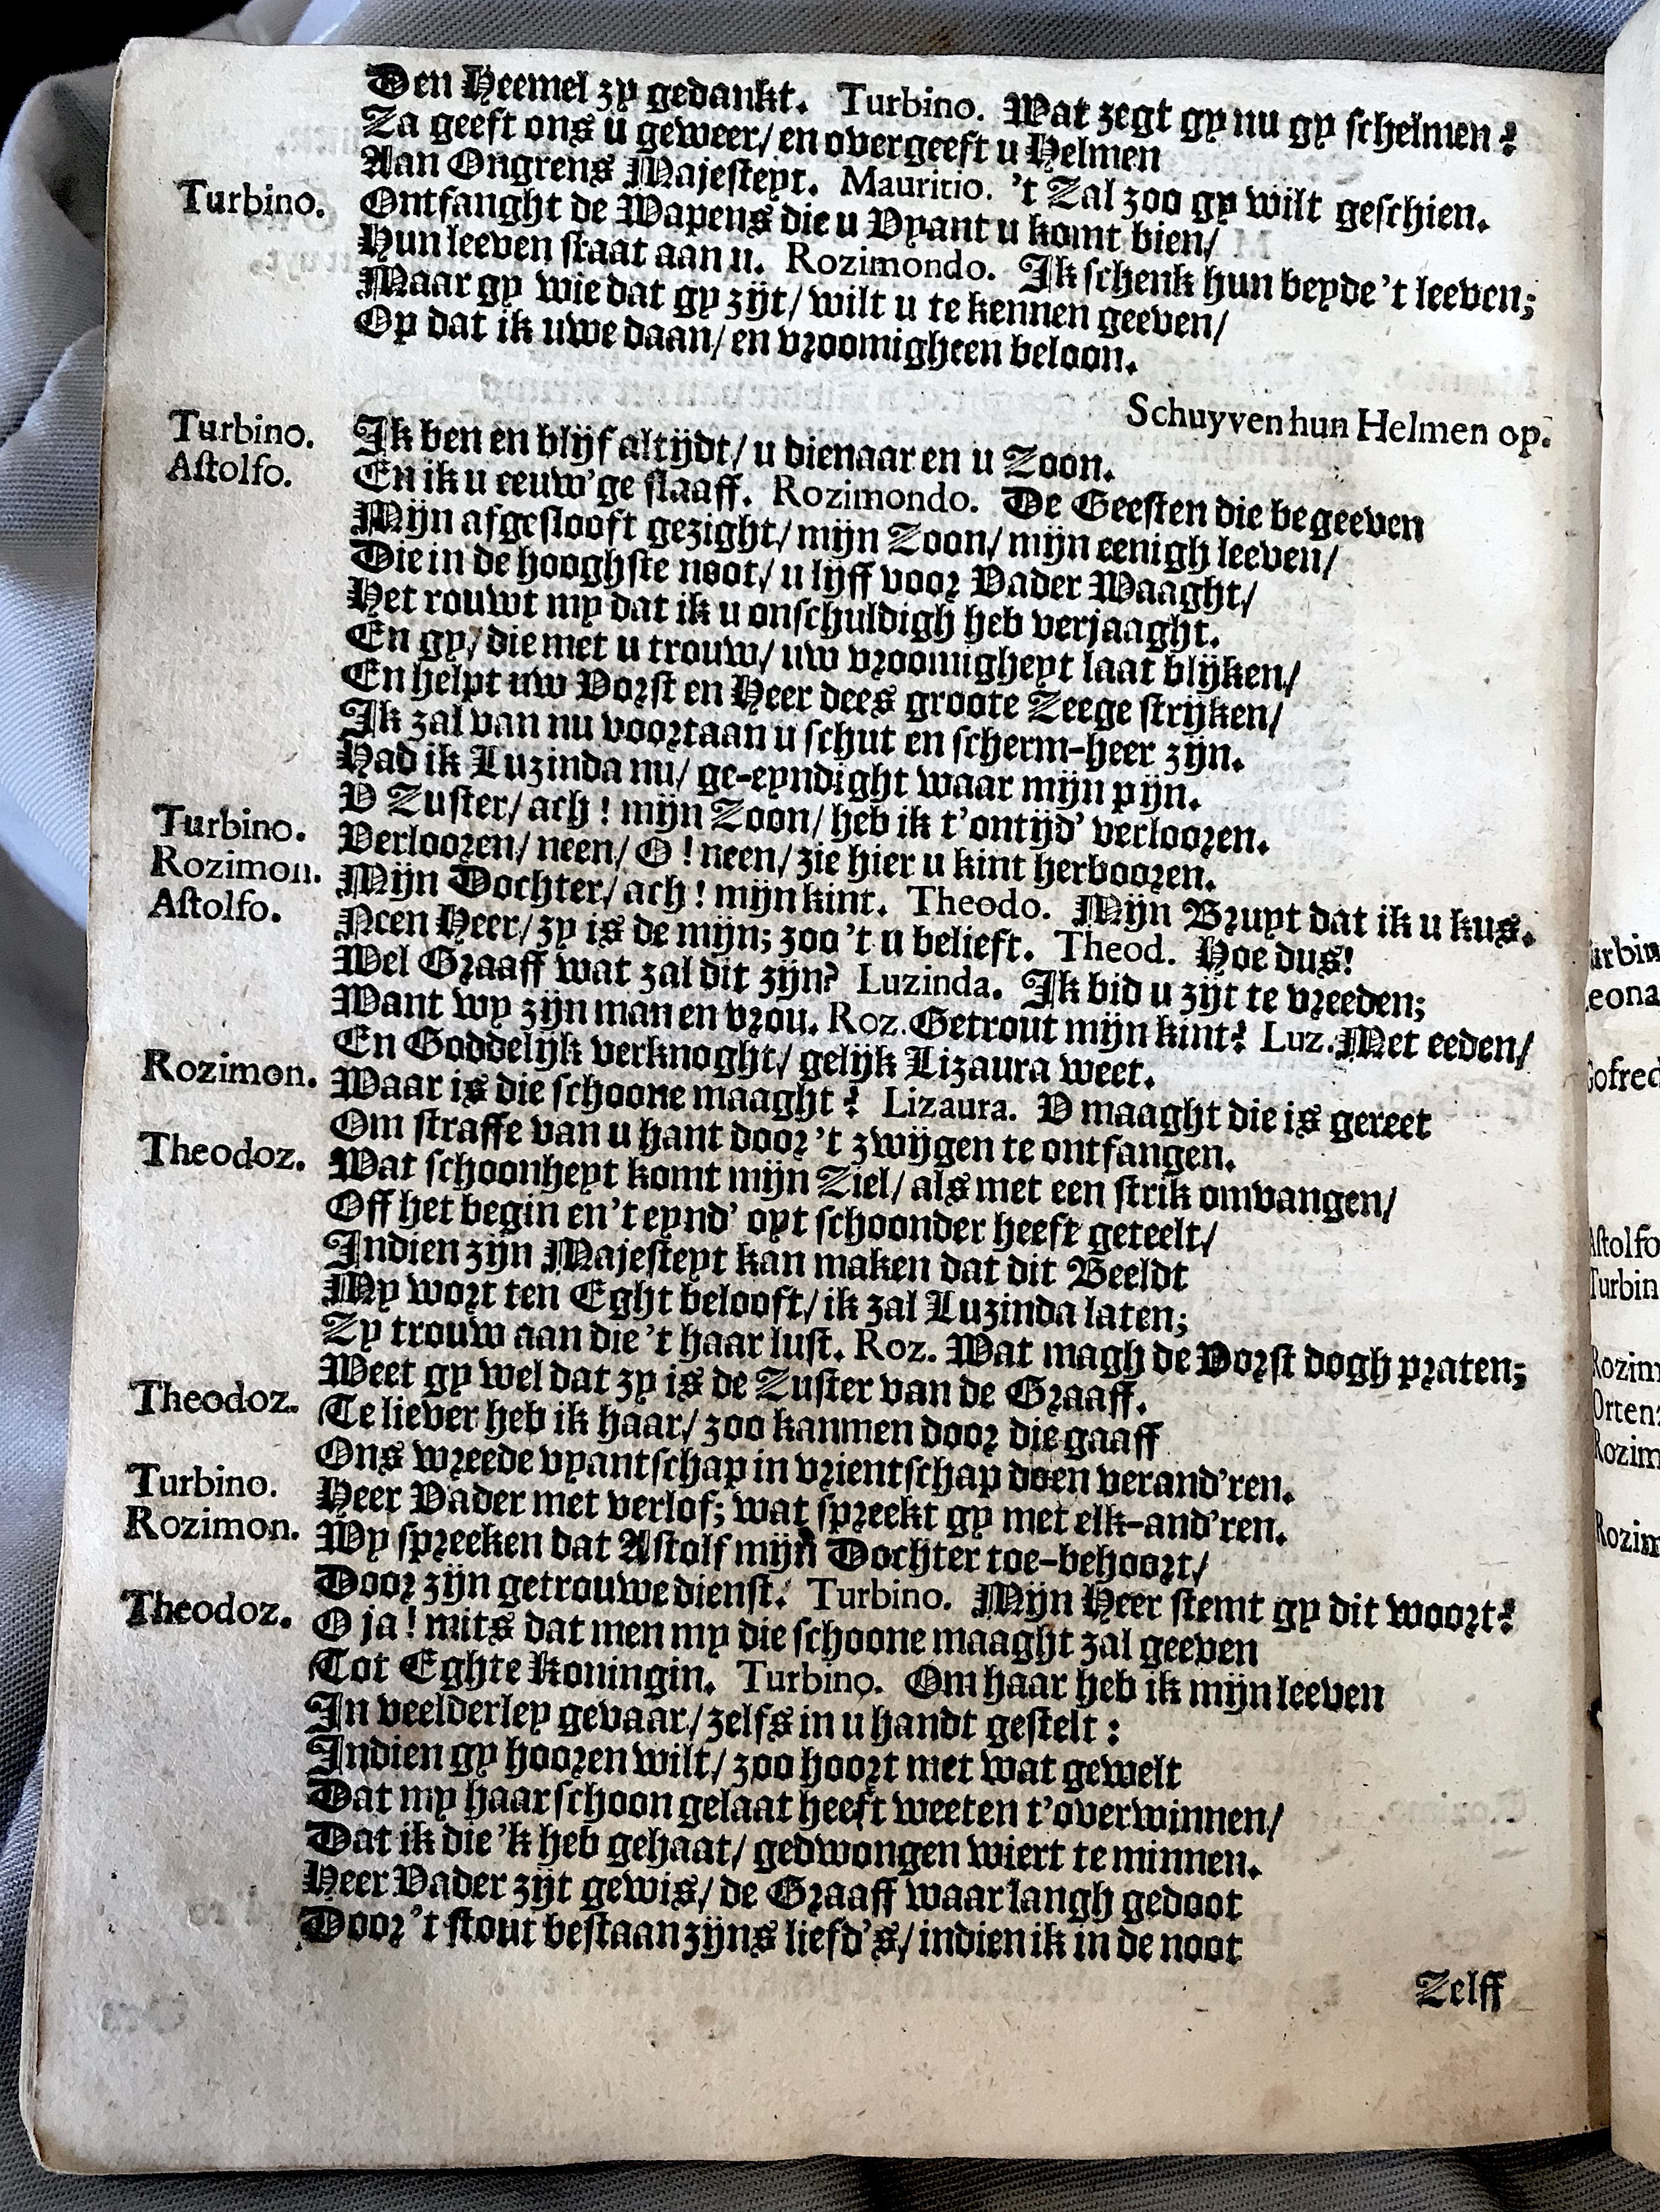 Den Heemel zy gedankt. Turbino. Wat zegt gy nu gy schelmen?
Za geeft ons u geweer/ en overgeeft u Helmen
Aan Ongrens Majesteyt. Mauritio. 't Zal zoo gy wilt geschien.
Turbino. Ontfanght de Wapens die u Vyant u komt bien/
Hun leeven staat aan u. Rozimondo. Ik schenk hun beyde 't leeven;
Maar gy wie dat gy zijt/ wilt u te kennen geeven/
Op dat ik uwe daan/ en vroomigheen beloon.
Schuyven hun Helmen op.
Turbino. Ik ben en blijf altijdt/ u dienaar en u Zoon.
Astolfo. En ik u eeuw'ge slaaff. Rozimondo. De Geesten die begeeven
Mijn afgeslooft gezight/ mijn Zoon/ mijn eenigh leeven/
Die in de hooghste noot/ u lijff voor Vader Waaght/
Het rouwt my dat ik u onschuldigh heb verjaaght.
En gy/ die met u trouw/ uw vroomigheyt laat blijken/
En helpt uw Vorst en Heer dees groote Zeege strijken/
Ik zal van nu voortaan u schut en scherm-heer zijn.
Had ik Luzinda nu/ ge-eyndight waar mijn pijn.
U Zuster/ ach! mijn Zoon/ heb ik t'ontijd' verlooren.
Turbino. Verlooren/ neen/ O! neen/ zie hier u kint herbooren.
Rozimon. Mijn Dochter/ ach! mijn kint. Theodo. Mijn Bruyt dat ik u kus.
Astolfo. Neen Heer/ zy is de mijn; zoo 't u belieft. Theod. Hoe dus!
Wel Graaff wat zal dit zijn? Luzinda. Ik bid u zijt te vreeden;
Want wy zijn man en vrou. Roz. Getrout mijn kint? Luz. Met eeden/
En Goddelijk verknoght/ gelijk Lizaura weet.
Rozimon. Waar is die schoone maaght? Lizaura. U maaght die is gereet
Om straffe van u hant door 't zwijgen te ontfangen.
Theodoz. Wat schoonheyt komt mijn Ziel/ als met een strik omvangen/
Off het begin en 't eynd' oyt schoonder heeft geteelt/
Indien zijn Majesteyt kan maken dat dit Beeldt
My wort ten Eght belooft/ ik zal Luzinda laten;
Zy trouw aan die 't haar lust. Roz. Wat magh de Vorst dogh praten;
Weet gy wel dat zy is de Zuster van de Graaff.
Theodoz. Te liever heb ik haar/ zoo kanmen door die gaaff
Ons wreede vyantschap in vrientschap doen verand'ren.
Turbino. Heer Vader met verlof; wat spreekt gy met elk-and'ren.
Rozimon. Wy spreeken dat Astolf mijn Dochter toe-behoort/
Door zijn getrouwe dienst. Turbino. Mijn Heer stemt gy dit woort?
Theodoz. O ja! mits dat men my die schoone maaght zal geeven
Tot Eghte Koningin. Turbino. Om haar heb ik mijn leeven
In veelderley gevaar/ zelfs in u handt gestelt:
Indien gy hooren wilt/ zoo hoort met wat gewelt
Dat my haar schoon gelaat heeft weeten t'overwinnen/
Dat ik die 'k heb gehaat/ gedwongen wiert te minnen.
Heer Vader zijt gewis/ de Graaff waar langh gedoot
Door 't stout bestaan zijns liefd's/ indien ik in de noot
Zelff